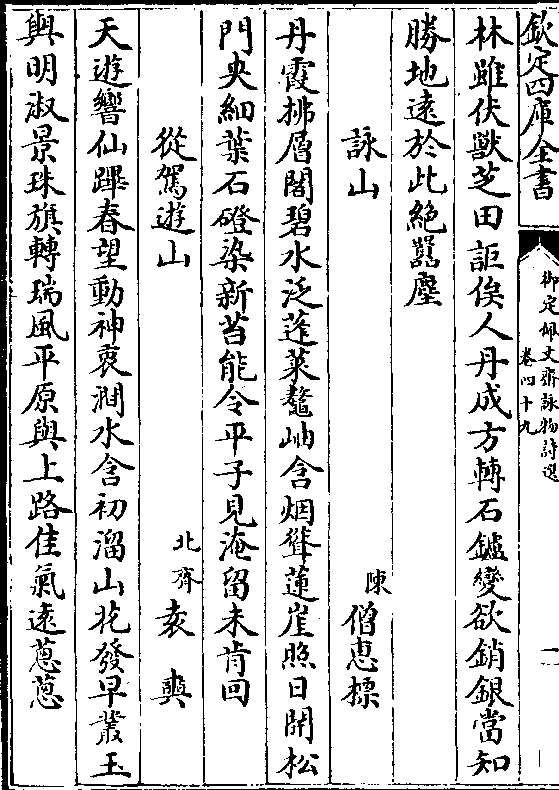 欽定四庫全書
御定佩文齋詠物詩選
卷四十九
林雖伏獸芝田詎俟人丹成方轉石鑪變欲銷銀當知
勝地遠於此絕囂塵
詠山
陳
僧惠摽
丹霞拂層閣碧水泛蓬萊鼇岫含烟聳蓮崖照日開松
門夾細葉石磴染新苔能令平子見淹留未肯回
從駕遊山
北齊
袁奭
天遊響仙蹕春望動神衷澗水含初溜山花發早叢玉
輿明淑景珠旗轉瑞風平原與上路佳氣遠蔥蔥